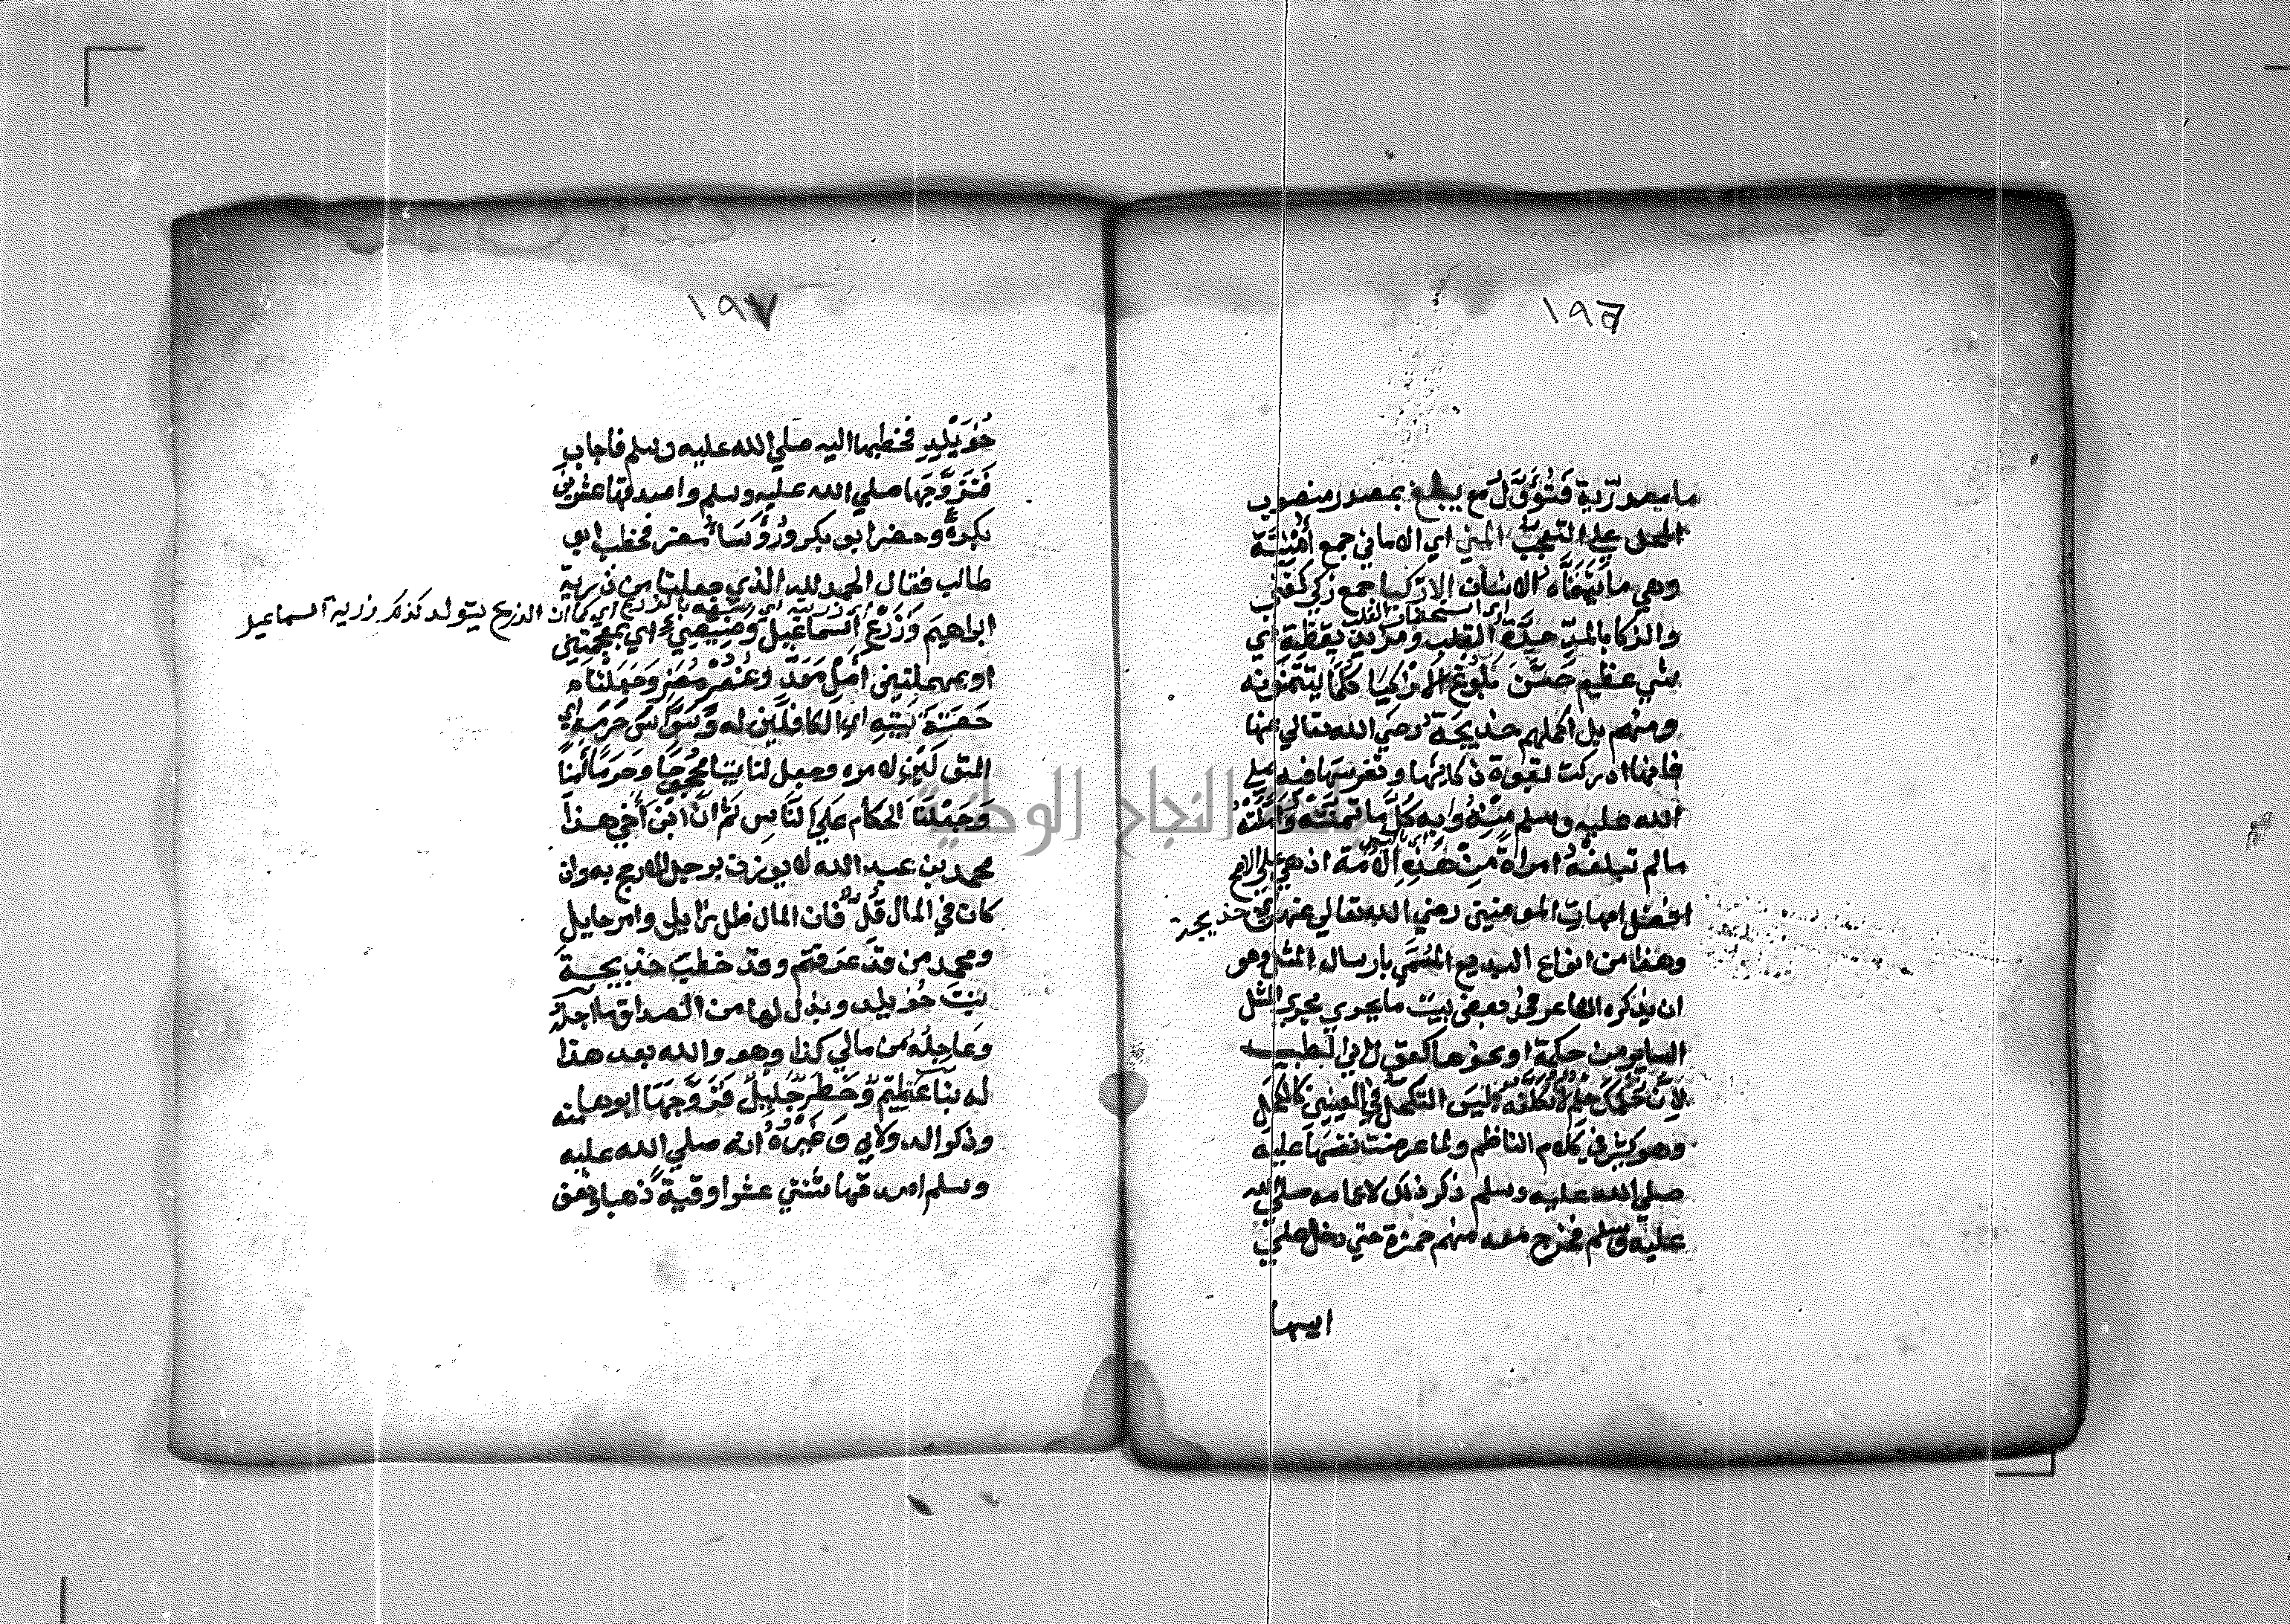 ١٩٦
ما مصدرية فتؤول مع يبلغ بمصدر منصوب
المحل علي التعجب المني اي الاماني جمع أمنية
وهي ما يتمناه الانسان الازكيا جمع زكي كغني
اي استحفاظ القلب
والذكا بالمد حدة القلب ومزيد يقظة اي
شي عظيم حسن بلوغ الازكيا كلما يتمنونه
ومنهم بل اكملهم خديجة رضي الله تعالي عنها
فانها ادركت بقوة ذكائها وتفرسها فيه صلي
الله عليه وسلم منه وبه كل ما تمنته وأملته
مالم تبلغه امراة من هذه الامة اذ هي علي الاصح
افضل امهات المومنين رضي الله تعالي عنهن
اي خديجة
وهذا من انواع البديع المسمي بارسال المثل وهو
ان يذكره الشاعر في بعض بيت ما يجري مجري المثل
الساير من حكمة او نحوها كقول ابي الطيب
لأن حلمك حلم لا تكلفه ليس التكحل في العينين كالكحل
وهو كثير في كلام الناظم ولما عرضت نفسها عليه
صلي الله عليه وسلم ذكر ذلك لاعمامه صلي الله
عليه وسلم فخرج معه منهم حمزة حتي دخل علي
ابيها
١٩٧
خويلد فخطبها اليه صلي الله عليه وسلم فاجاب
فتزوجها صلي الله عليه وسلم واصدقها عشرين
بكرة وحضر ابو بكر ورؤسا مضر فخطب ابو
طالب فقال الحمد لله الذي جعلنا من ذرية
اي ذريته اي شبهه بالزرع اي كما ان الذرع يتولد كذلك ذرية اسماعيل
ابراهيم وزرع إسماعيل وضئضئ اي بمعجمتين
او بمهملتين أصل معد وعنصر مضر وجعلنا
حضنة بيته اي الكافلين له وسواس حرمه اي
المتولين لامره وجعل لنا بيتا محجوجا وحرما أمنا
وجعلنا الحكام علي الناس ثم ان ابن أخي هذا
محمد بن عبد الله لا يوزن برجل الا رجح به وان
كان في المال قل فان المال ظل زايل وامر حايل
ومحمد من قد عرفتم وقد خطب خديجة
بنت خويلد وبذل لها من الصداق ما اجله
وعاجله من مالي كذا وهو والله بعد هذا
له نبا عظيم وخطر جليل فزوجها ابوها منه
وذكر الدولابي وغيره انه صلي الله عليه
وسلم اصدقها ثنتي عشر اوقية ذهبا ونش